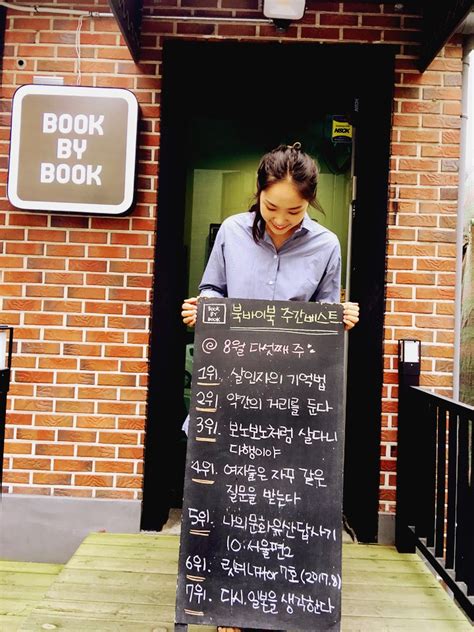 BOOK
BY
BOOK
BOOK
BY
BOOK
북바이북 주간베스트
@ 8월 다섯째 주
1위. 살인자의 기억법
2위. 약간의 거리를 둔다
3위. 보노보노처럼 살다니
다행이야
4위. 여자들은 자꾸 같은
질문을 받는다
5위. 나의문화유산답사기
10:서울편2
6위. 릿터Littor 7호 (2017.8)
7위. 다시, 일본을 생각한다